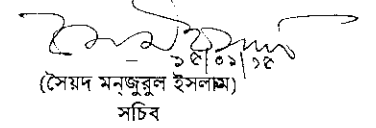 ১৫/০১/১৫
(সৈয়দ মন্জুরুল ইসলাম)
সচিব